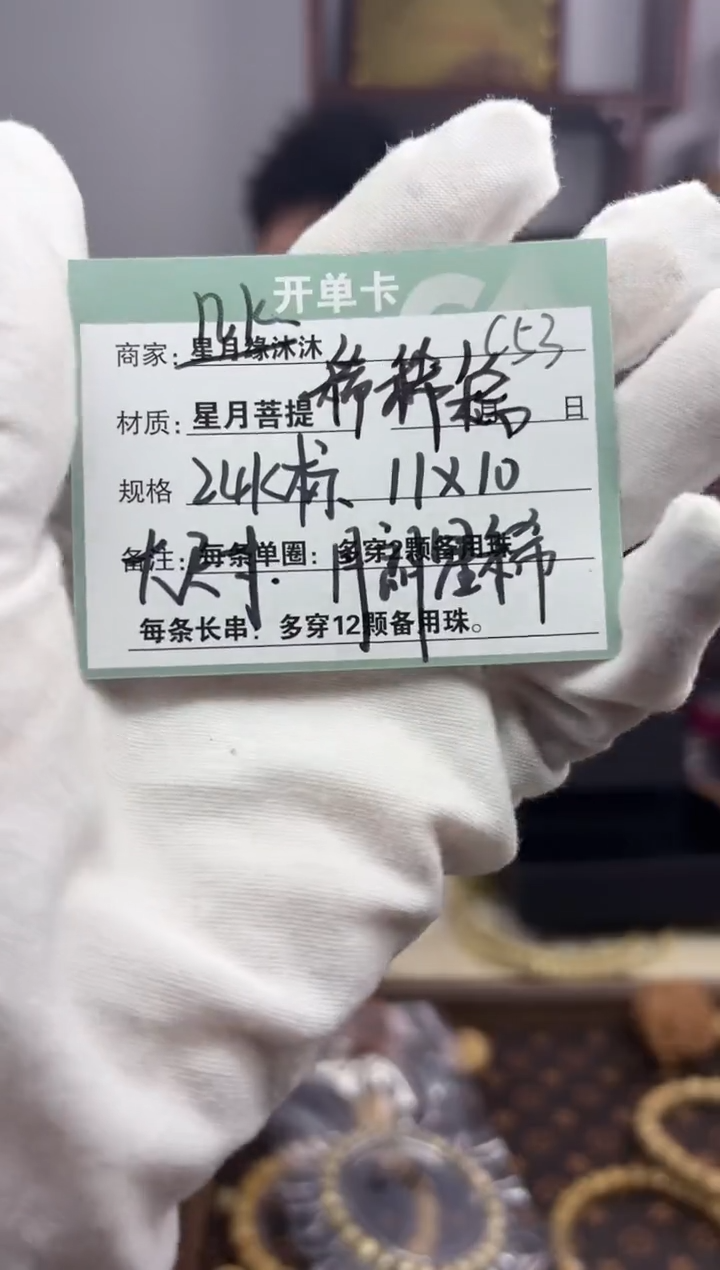 开单卡
商家：星月缘沐沐 C53
材质：星月菩提 稀稀稀 日
规格 24K标 11X10
备注：每条单圈：多穿2颗备用珠
大尺寸. 月朗星稀
每条长串：多穿12颗备用珠。